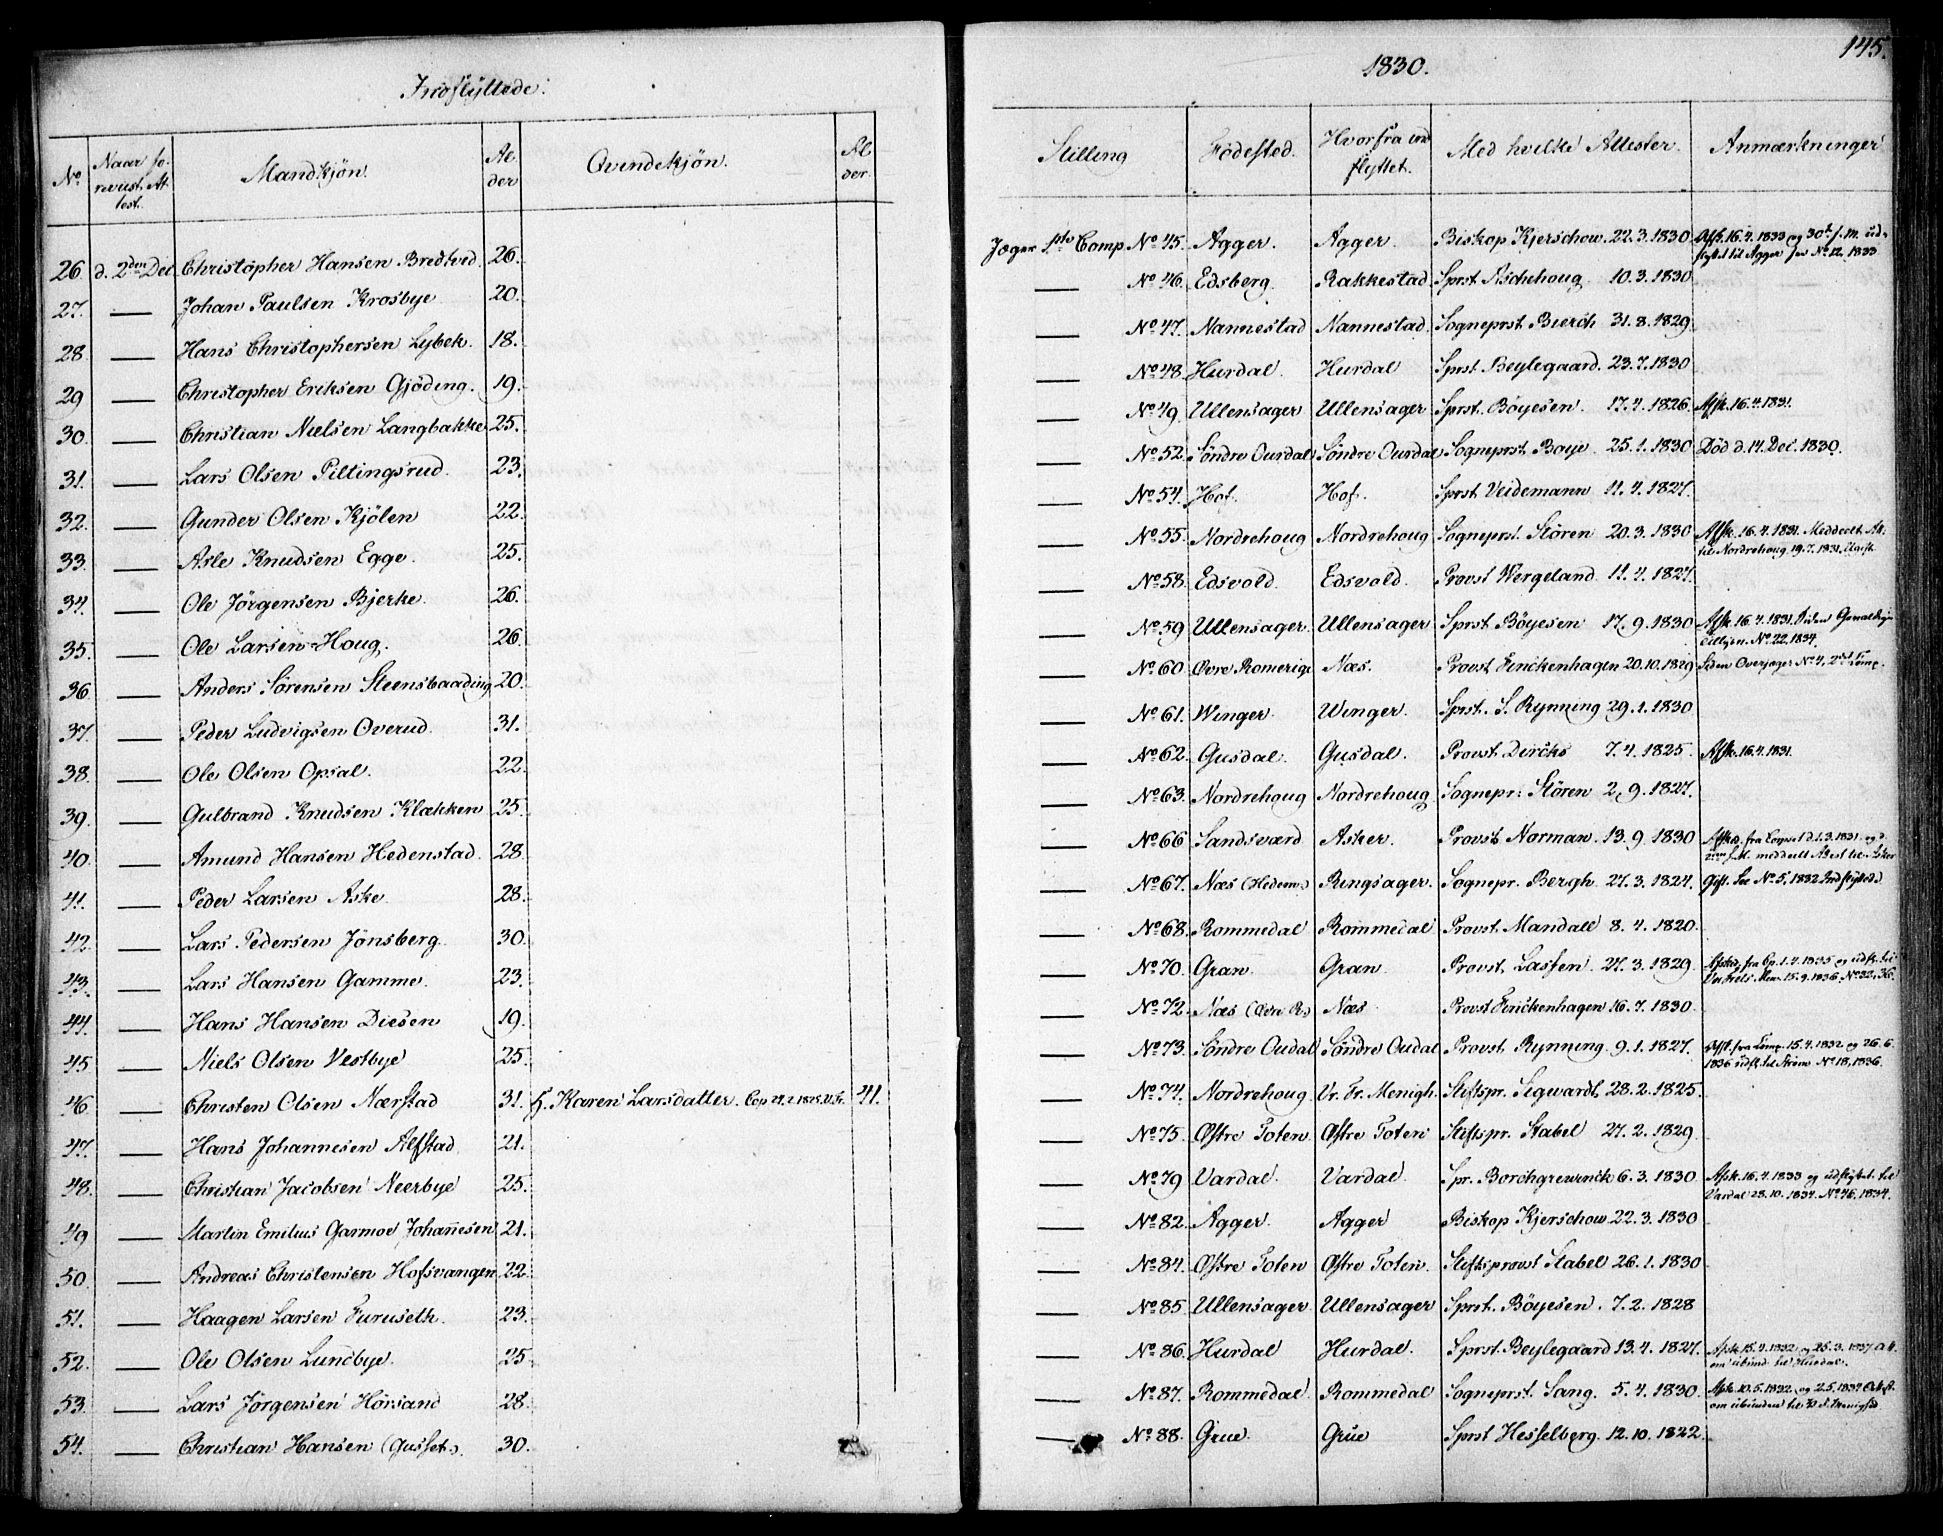 Indflyttede.
No Naar forevist Attest. Mandkjøn. Alder Qvindekjøn. Alder.
26. d. 2den Dec. Christopher Hansen Bredtved. 26.
27. — Johan Paulsen Krosbye 20.
28 — Hans Christophersen Lybek. 18.
29 — Christopher Eriksen Gjöding. 19.
30. — Christian Nielsen Langbakke 25.
31. — Lars Olsen Piltingsrud. 23.
32. — Gunder Olsen Kjölen 22.
33. — Asle Knudsen Egge. 25.
34. — Ole Jörgensen Bjerke. 26.
35. — Ole Larsen Houg. 26.
36 — Anders Sörensen Steensbaading 20.
37. — Peder Ludvigsen Overud. 31.
38. — Ole Olsen Opsal. 22.
39. — Gulbrand Knudsen Klækken 25.
40. — Amund Hansen Hedenstad. 28
41. — Peder Larsen Aske. 28.
42. — Lars Pedersen Jönsberg. 30.
43. — Lars Hansen Gamme. 23.
44. — Hans Hansen Diesen 19.
45 — Niels Olsen Vestbye 25.
46. — Christen Olsen Nærstad 31. H. Karen Larsdatter. 41.
47. — Hans Johannesen Alfstad. 21.
48. — Christian Jacobsen Neerbye 25.
49 — Martin Emilius Garmoe Johannesen 21.
50. — Andreas Christensen Hofsvangen 22
51. — Haagen Larsen Furuseth. 23.
52. — Ole Olsen Lundbye. 25
53. — Lars Jörgensen Hörsand 28.
54. — Christian Hansen (Gusset.) 30.
1830. 145.
Stilling Fødested. Hvorfra indflyttet. Med hvilke Attester. Anmærkninger
Jæger 1ste Comp No 45. Agger. Agger. Biskop Kjerschow. 22.3.1830 Afsk. 16.4.1833 og 30te s. M. udflyttet til Agger No 12, 1833
— No 46. Edsberg. Rakkestad Sprst Aschehoug 10.3.1830
— No 47. Nannestad Nannestad. Sogneprst Bierch 31.8.1829.
— No 48. Hurdal. Hurdal Sprst Beylegaard. 23.7.1830
— No 49. Ullensager Ullensager Sprst. Böyesen. 17.4.1826. Afsk. 16.4.1831.
— No 52. Söndre Ourdal Söndre Ourdal Sogneprst Boye 25.1.1830 Död d. 14. Dec. 1830.
— No 54. Hof. Hof. Sprst Veidemann 11.4.1827.
— No 55. Nordrehoug Nordrehoug Sogneprst. Stören 20.3.1830 Afsk. 16.4.1831. Meddeelt At. til Nordrehoug 19.7.1831. Ugift
— No 58. Edsvold. Edsvold. Provst Wergeland 11.4.1827.
— No 59 Ullensager. Ullensager Sprst Böyesen 17.9.1830 Afsk. 16.4.1831. No 22, 1834.
— No 60. Øvre Romerige Næs. Provst Finckenhagen 20.10.1829 Siden Overjæger No 4, 2det Comp.
— No 61. Winger. Winger. Sprst. S. Rynning 29.1.1830
— No 62. Gusdal. Gusdal. Provst Dircks 7.4.1825. Afsk. 16.4.1831.
— No 63. Nordrehoug Nordrehoug Sognepr: Stören 2.9.1827.
— No 66 Sandsværd Asker. Provst Norman 13.9.1830 Afsked fra Compet d. 1.3.1831 og d. 2den s. M. meddeelt Attest til Asker
— No 67. Næs (Hedem.) Ringsager. Sognepr. Bergh. 27.3.1827. Gift. See No 5, 1832 Indflyttede
— No 68. Rommedal Rommedal Provst. Mandall 8.4.1820.
— No 70. Gran Gran. Provst Lassen. 27.3.1829. Afsked fra Cp. 1.4.1835 og udfl. til Vor Frels. Men. 15.9.1836. No 32, 36.
— No 72. Næs (Øvre R.) Næs. Provst Finckenhagen 16.7.1830.
— No 73. Söndre Oudal Söndre Oudal Provst Rynning. 9.1.1827. Afsk. fra Comp. 15.4.1832 og 26.6.1836 udfl. til Ström No 18, 1836.
— No 74. Nordrehoug Vr. Fr. Menigh. Stiftspr. Sigwardt. 28.2.1825.
— No 75. Østre Toten Østre Toten Stiftspr. Stabel 27.2.1829.
— No 79 Vardal. Vardal. Spr. Borchgrewinck 6.3.1830. Afsk. 16.4.1833 og udflyttet til Vardal 28.10.1834. No 46, 1834.
— No 82. Agger. Agger Biskop Kjerschow 22.3.1830
— No 84. Østre Toten Østre Toten. Stiftsprovst Stabel 26.1.1830
— No 85. Ullensager Ullensager Sprst. Böyesen. 7.2.1828
— No 86. Hurdal Hurdal. Sprst. Beylegaard 13.4.1827. Afsk. 15.4.1832 og 25.3.1837 Att. om ubund. til Hurdal.
— No 87. Rommedal. Rommedal Sogneprst. Sang. 5.4.1830. Afsk. 10.5.1832
— No 88. Grue. Grue Sprst Hesselberg. 12.10.1822.